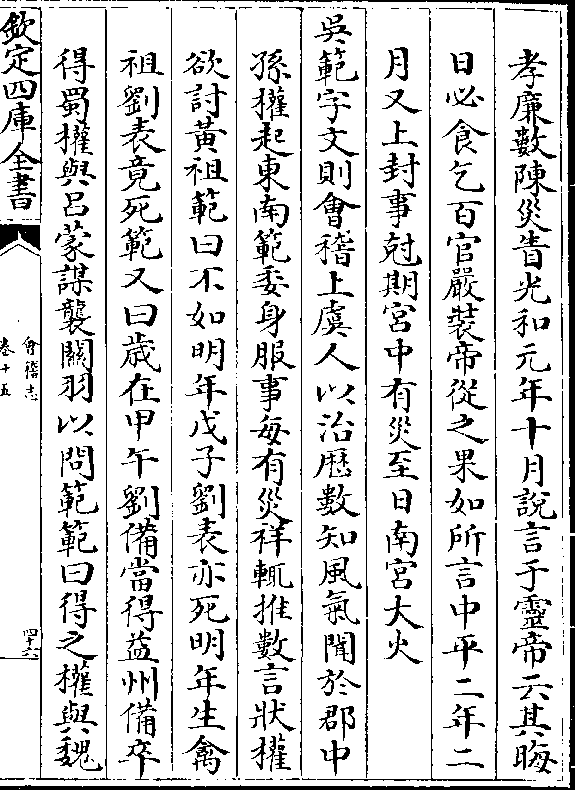 孝廉數陳災眚光和元年十月說言于靈帝云其晦
日必食乞百官嚴裝帝從之果如所言中平二年二
月又上封事尅期宮中有災至日南宮大火
吳範字文則會稽上虞人以治歴數知風氣聞於郡中
孫權起東南範委身服事每有災祥輒推數言狀權
欲討黃祖範曰不如明年戊子劉表亦死明年生禽
祖劉表竟死範又曰歲在甲午劉備當得益州備卒
得蜀權與呂蒙謀襲關羽以問範範曰得之權與魏
欽定四庫全書
會稽志
卷十五
四十六